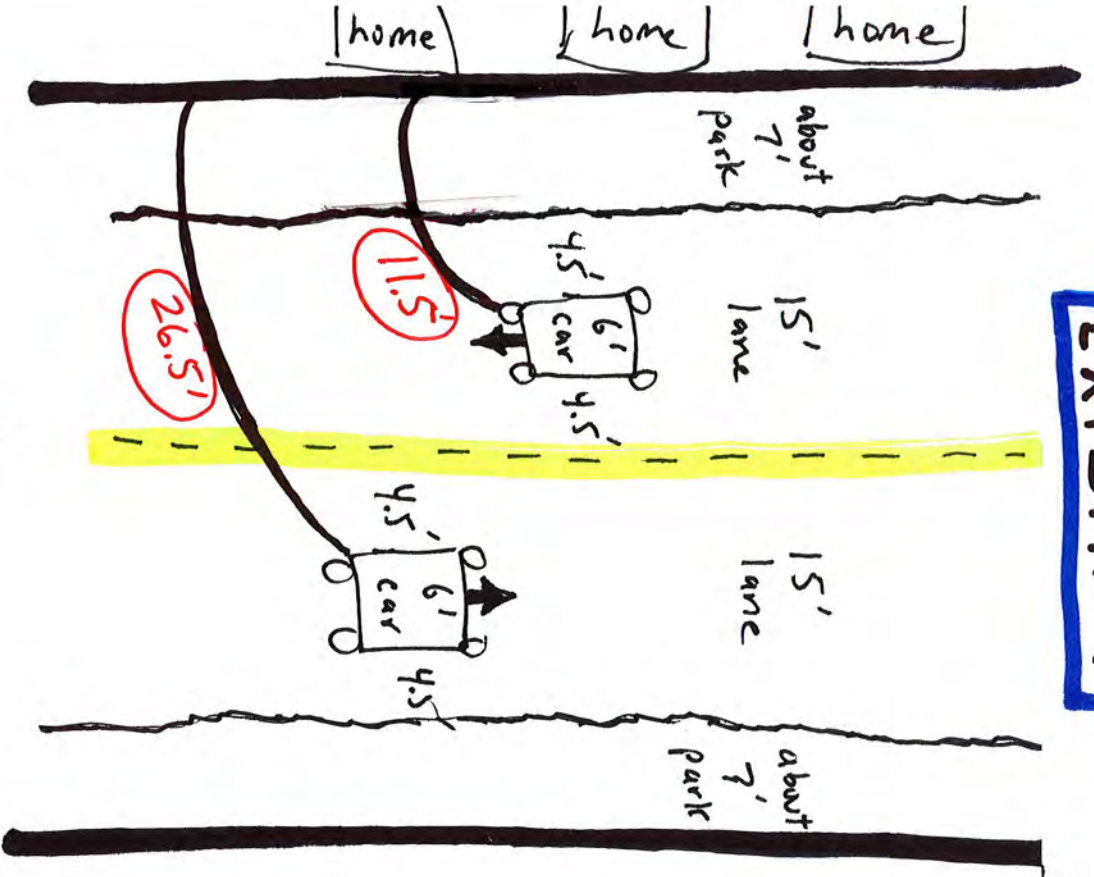 home
home
home
about
7'
park
4.5'
11.5'
6'
car
4.5'
15'
lane
26.5'
4.5'
6'
car
4.5'
15'
lane
about
7'
park